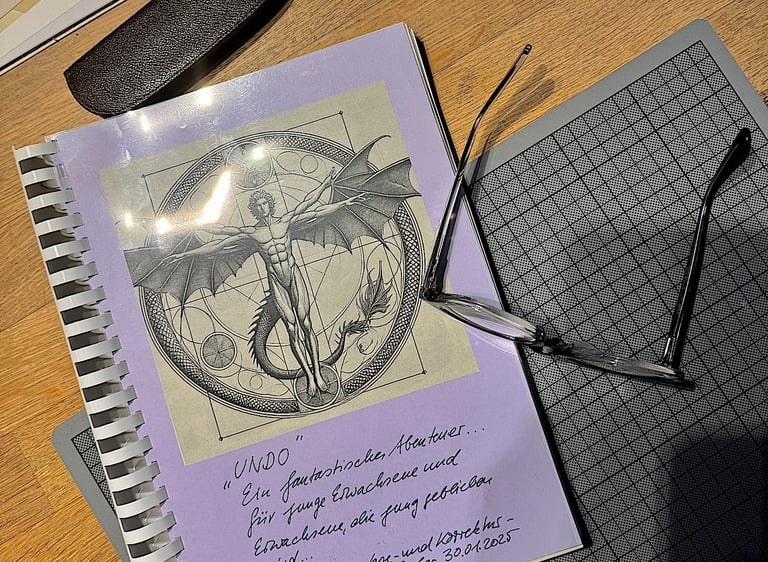 "UNDO"
Ein fantastisches Abenteuer...
für junge Erwachsene und
Erwachsene, die jung geblieben
sind...
und Korrektur-
30.01.2025